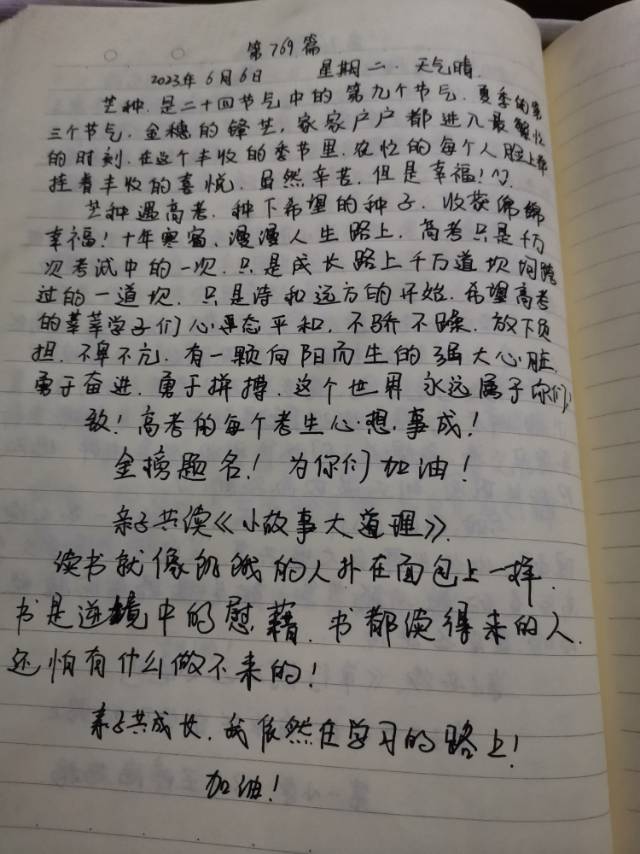 第769篇
2023年6月6日 星期二 天气晴
芒种,是二十四节气中的第九个节气,夏季的第
三个节气,金穗的锋芒,家家户户都进入最繁忙
的时刻,在这个丰收的季节里,农忙的每个人脸上都
挂着丰收的喜悦,虽然辛苦,但是幸福!
芒种遇高考,种下希望的种子,收获绵绵
幸福!十年寒窗,漫漫人生路上,高考只是千万
次考试中的一次,只是成长路上千万道坎坷跨
过的一道坎,只是诗和远方的开始,希望高考
的莘莘学子们心态平和,不骄不躁,放下负
担,不卑不亢,有一颗向阳而生的强大心脏,
勇于奋进,勇于拼搏,这个世界永远属于你们!
致!高考的每个考生心想事成!
金榜题名!为你们加油!
亲子共读《小故事大道理》
读书就像饥饿的人扑在面包上一样,
书是逆境中的慰藉,书都读得来的人,
还怕有什么做不来的!
亲子共成长,我依然在学习的路上!
加油!